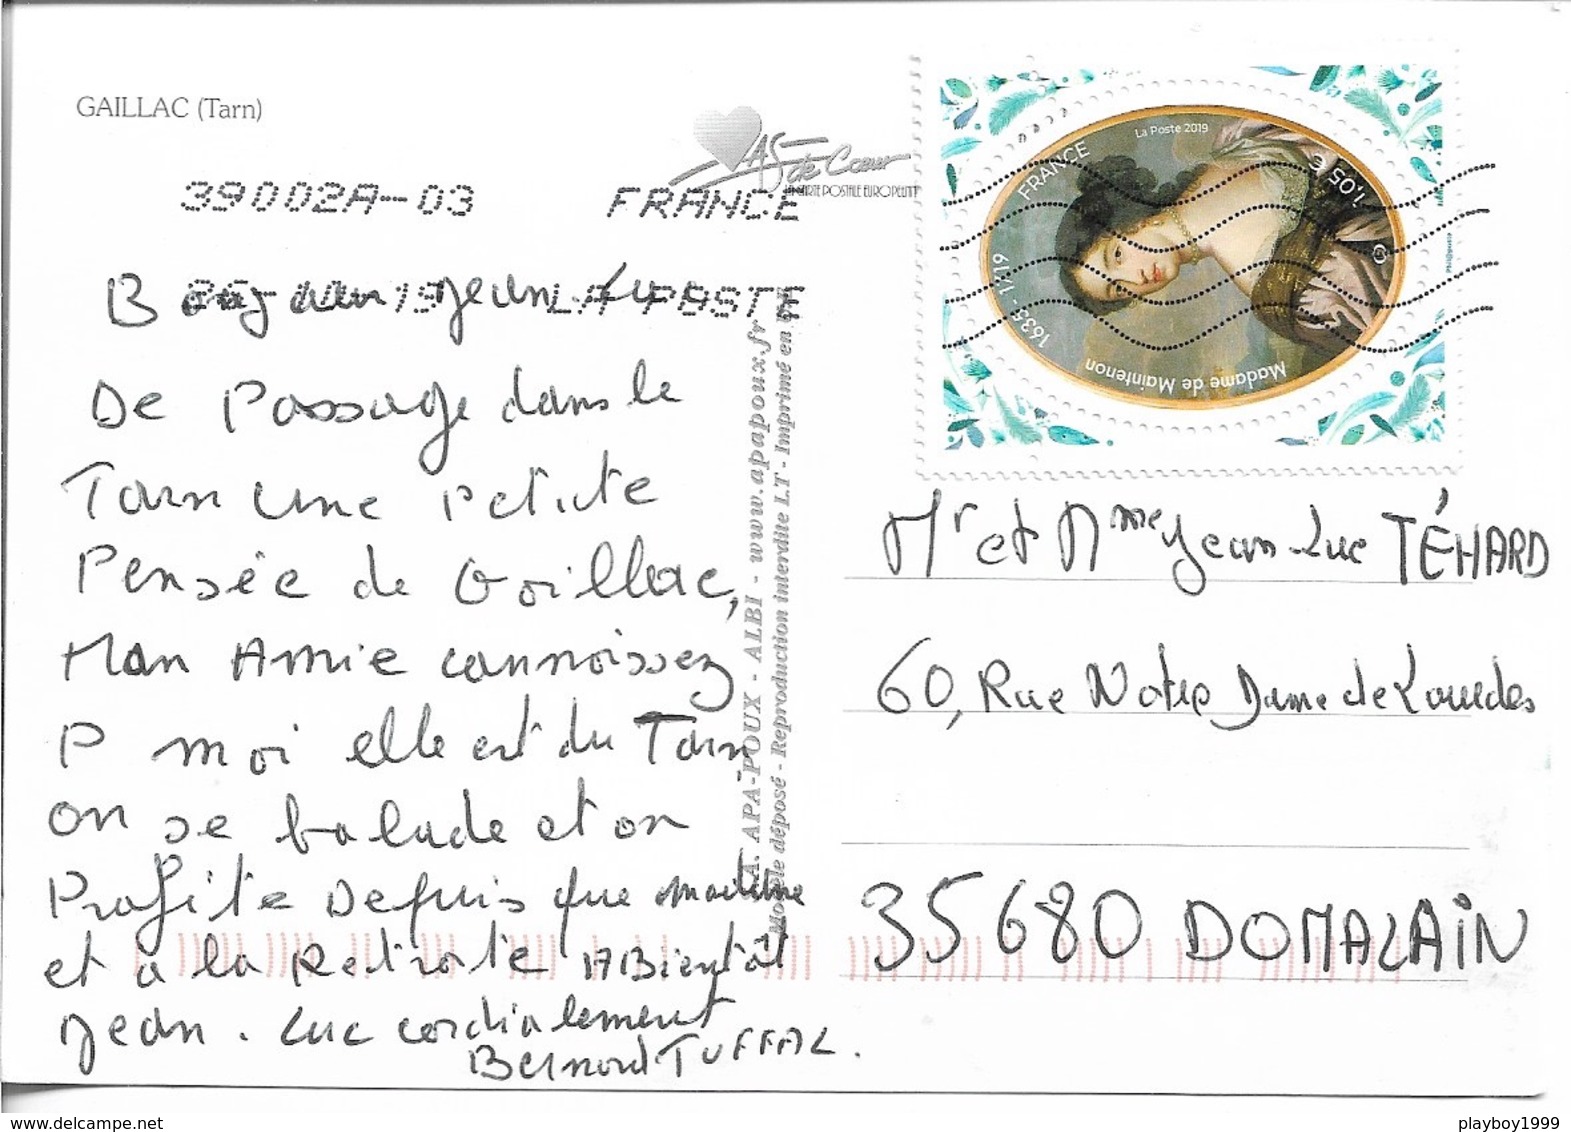 GAILLAC (Tarn)
AS de Cœur
LA CARTE POSTALE EUROPEENNE
39002A-03 FRANCE
LA POSTE
La Poste 2019
FRANCE
1,05 €
1635 - 1719
Madame de Maintenon
Phil@poste
Bonjour Jean Luc
De Passage dans le
Tarn une Petite
Pensée de Gaillac,
Mon Amie connaissez
P moi elle est du Tarn
on se balade et on
Profite Depuis que
et a la Retraite A Bientôt
Jean. Luc cordialement
Bernard TUFFAL.
S.A. APA-POUX - ALBI - www.apapoux.fr
Modèle déposé - Reproduction interdite LT - Imprimé en
Mr et Mme Jean-Luc TÉHARD
60, Rue Notre Dame de Lourdes
35680 DOMALAIN
delcampe.net
playboy1999